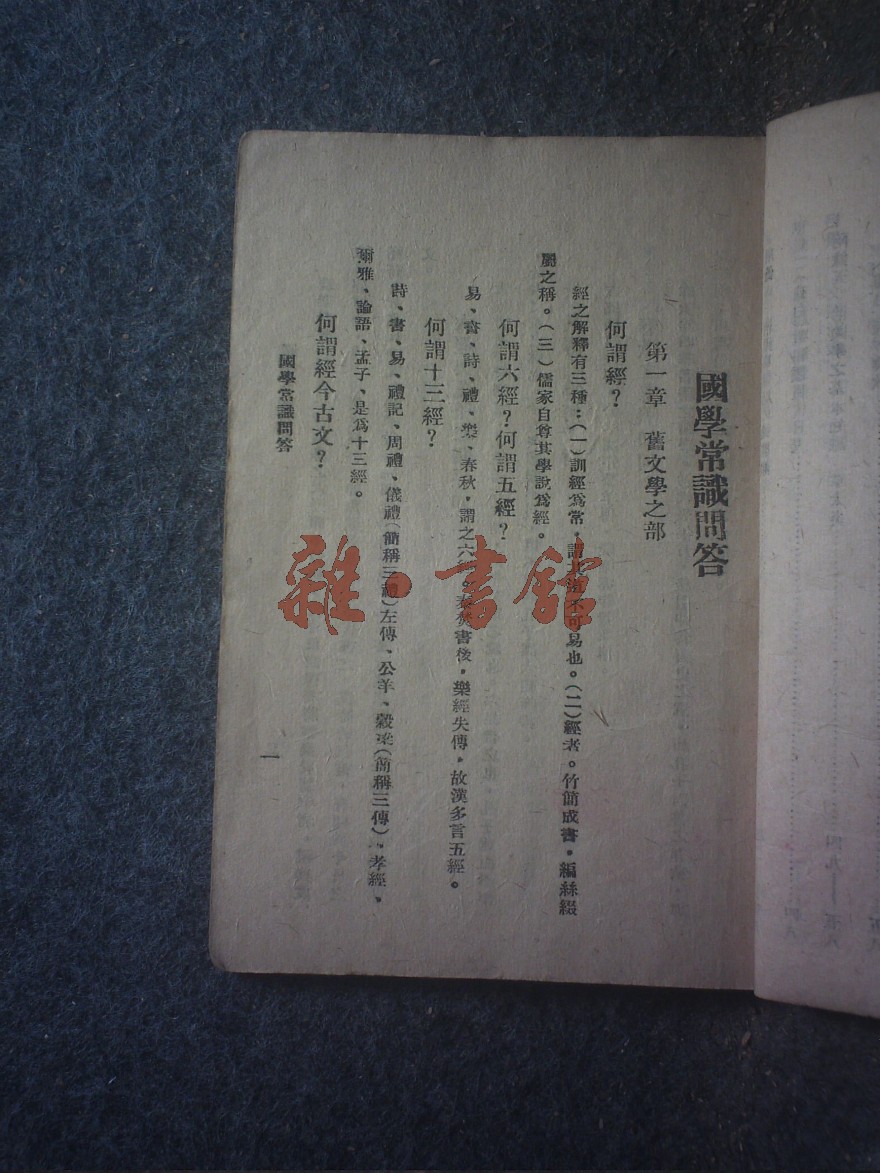 國學常識問答
第一章 舊文學之部
何謂經？
經之解釋有三種：(一)訓經爲常，謂其道不可易也。(二)經者。竹簡成書，編絲綴
屬之稱。(三)儒家自尊其學說爲經。
何謂六經？何謂五經？
易、書、詩、禮、樂、春秋，謂之六 秦焚書後，樂經失傳，故漢多言五經。
何謂十三經？
詩、書、易、禮記、周禮、儀禮(簡稱三禮)左傳、公羊、穀梁(簡稱三傳)，孝經。
爾雅、論語、孟子、是爲十三經。
何謂經今古文？
國學常識問答
一
雜·書館
四九——五八
四八